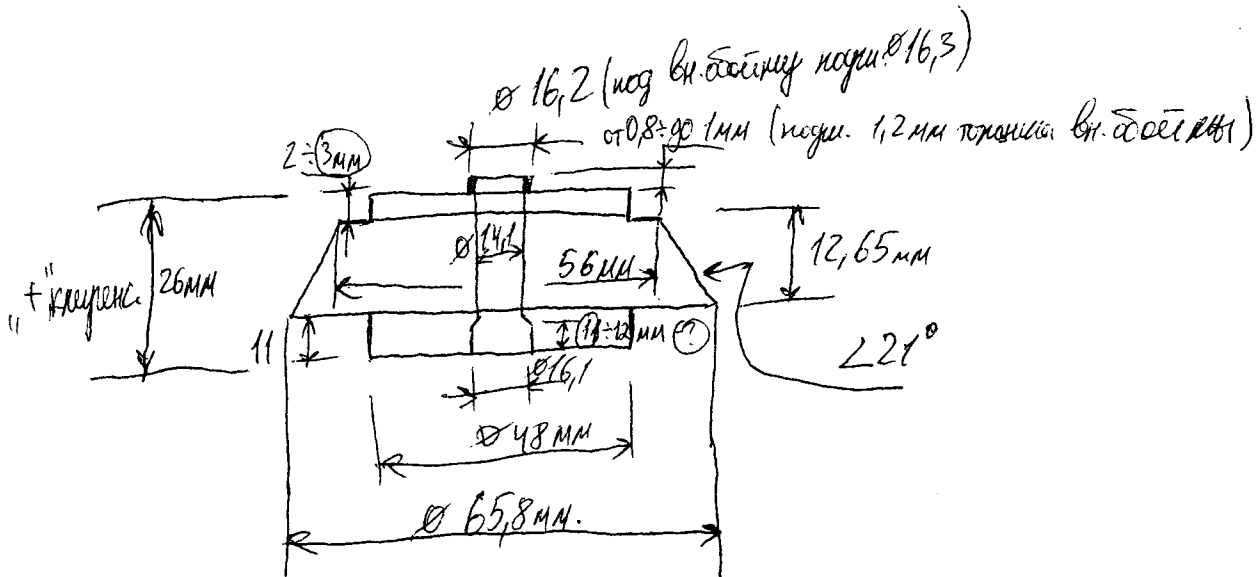 ⌀ 16,2 (под вн. обойму подш. ⌀16,3)
от 0,8÷до 1мм (подш. 1,2 мм толщина вн. обоймы)
2÷3мм
⌀ 14,1
56мм
12,65мм
"+" клиренс.
26мм
11
11÷12мм ?
∠21°
⌀16,1
⌀ 48мм
⌀ 65,8мм.